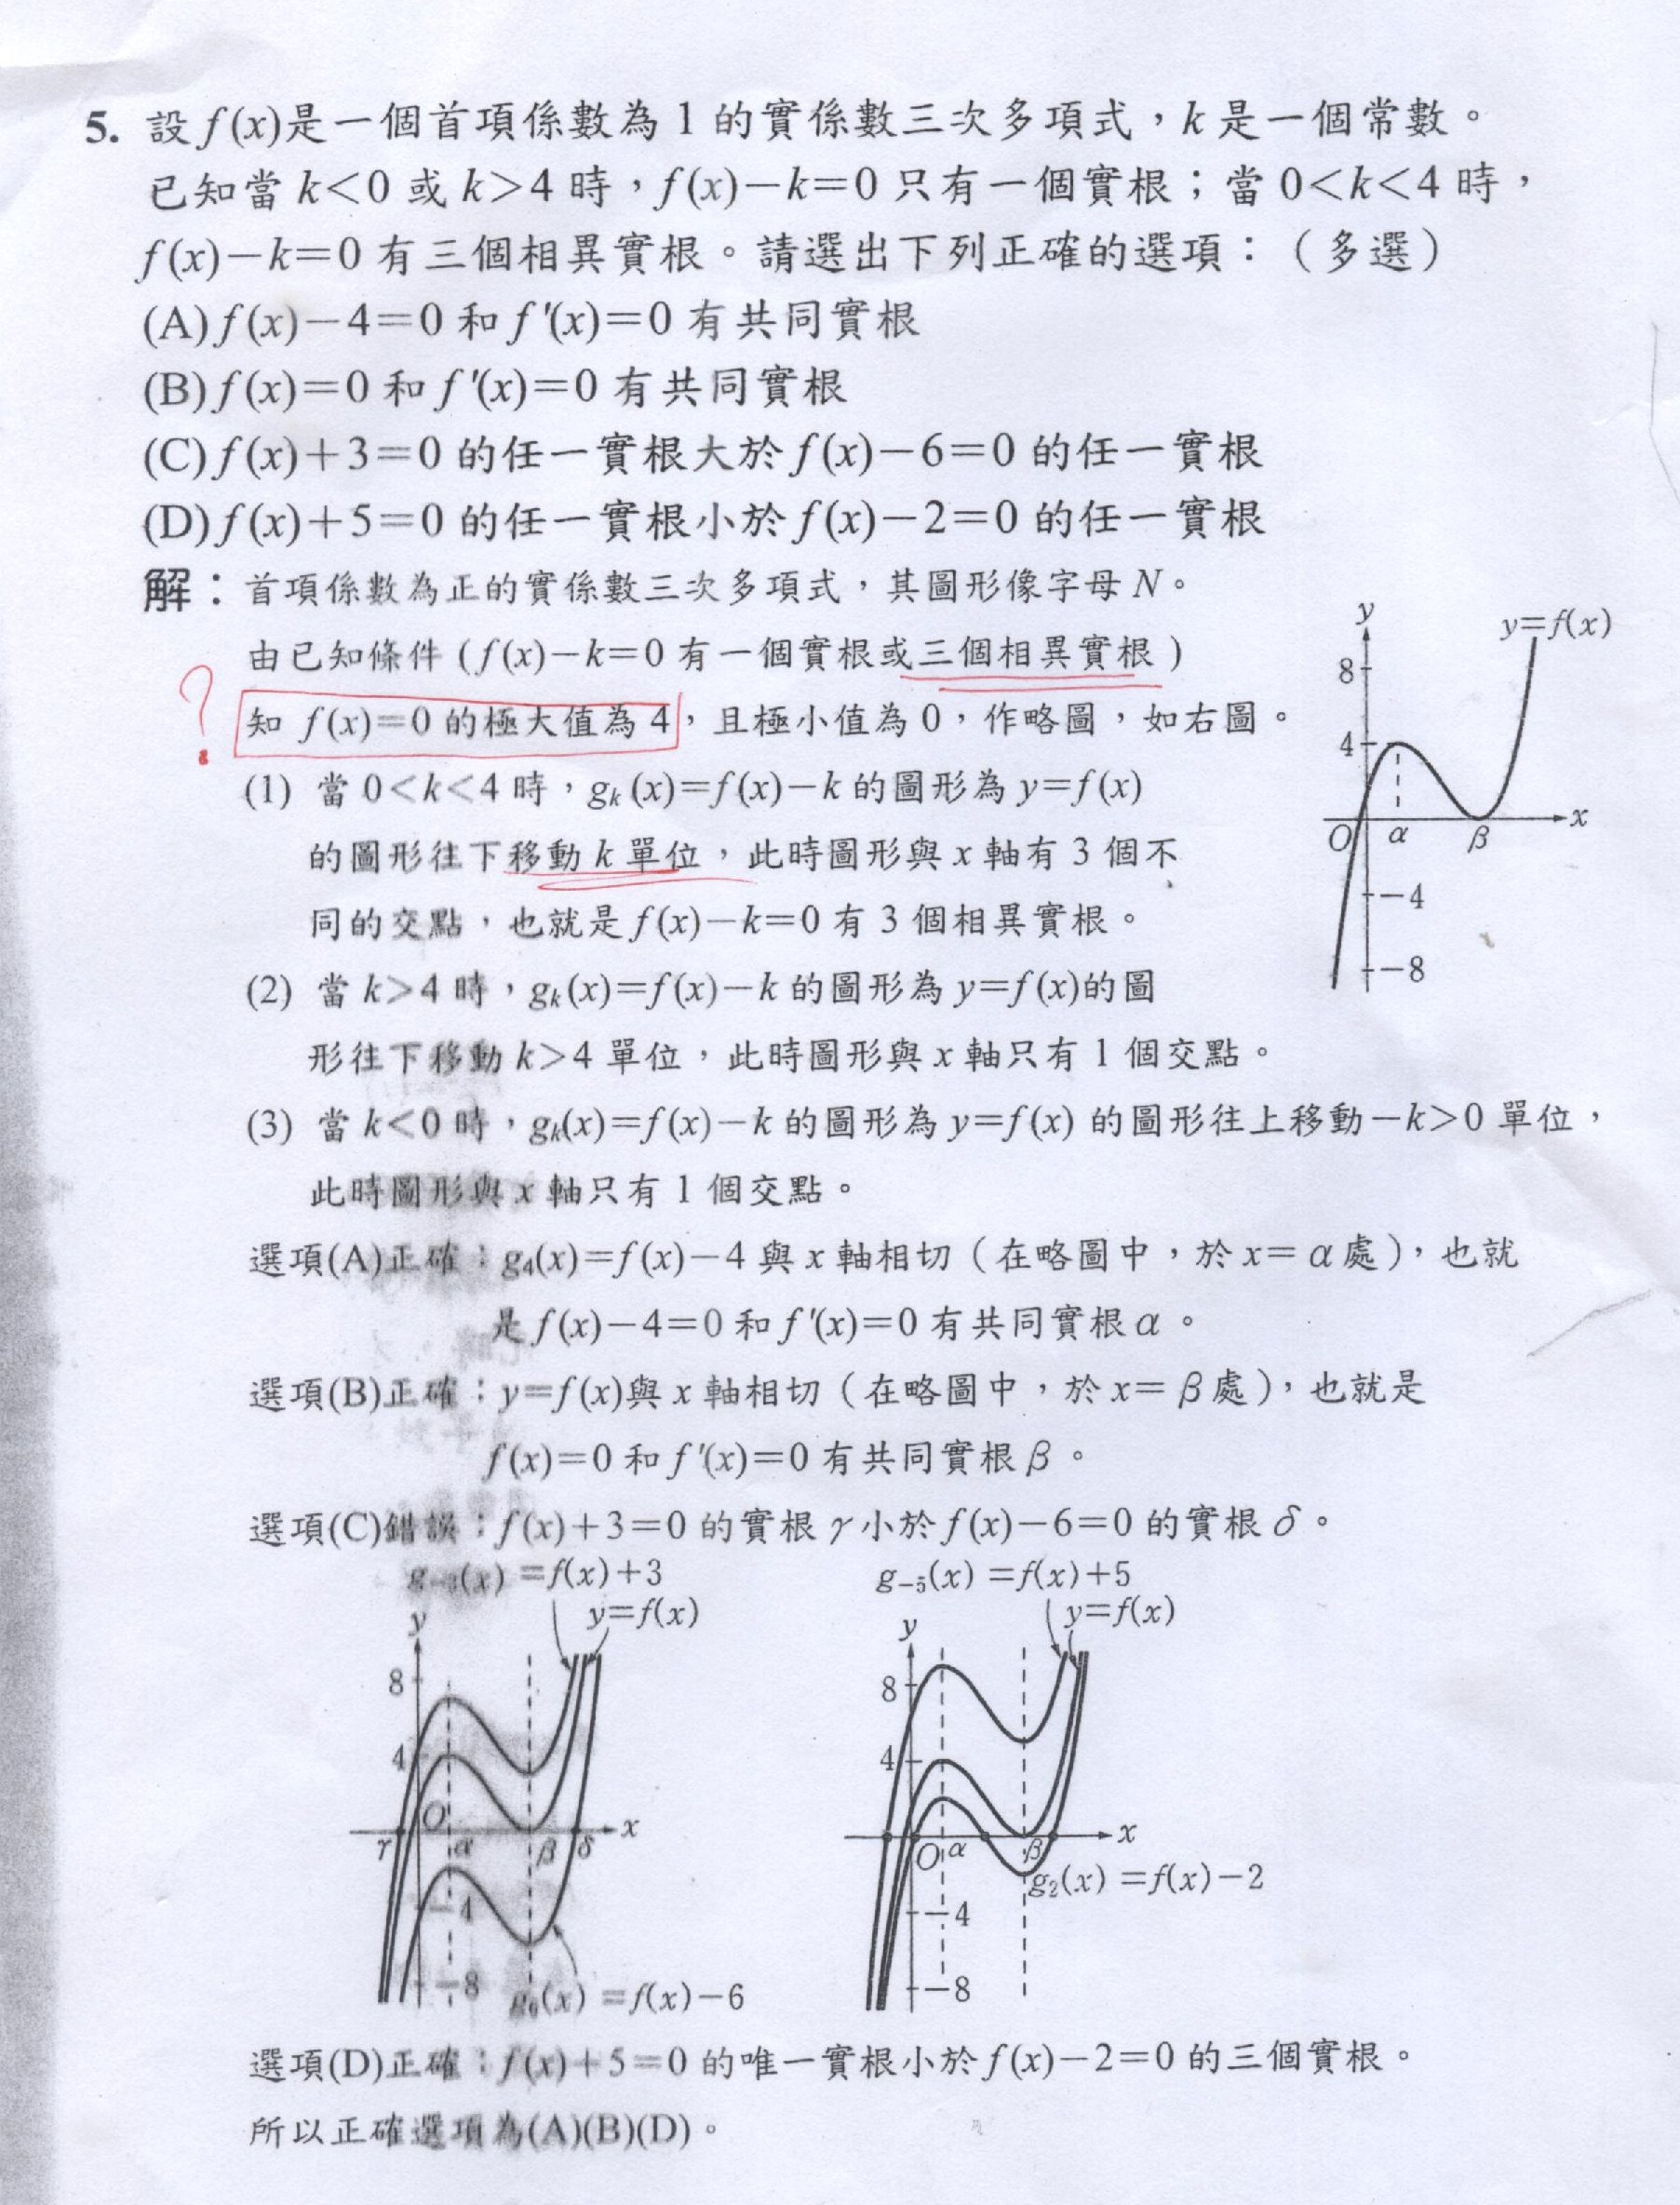 5. 設 f(x)是一個首項係數為 1 的實係數三次多項式，k 是一個常數。
已知當 k<0 或 k>4 時，f(x)−k=0 只有一個實根；當 0<k<4 時，
f(x)−k=0 有三個相異實根。請選出下列正確的選項：（多選）
(A) f(x)−4=0 和 f'(x)=0 有共同實根
(B) f(x)=0 和 f'(x)=0 有共同實根
(C) f(x)+3=0 的任一實根大於 f(x)−6=0 的任一實根
(D) f(x)+5=0 的任一實根小於 f(x)−2=0 的任一實根
解：首項係數為正的實係數三次多項式，其圖形像字母 N。
由已知條件 ( f(x)−k=0 有一個實根或三個相異實根 )
? 知 f(x)=0 的極大值為 4，且極小值為 0，作略圖，如右圖。
y
y=f(x)
8
4
O α β x
−4
−8
(1) 當 0<k<4 時，gk(x)=f(x)−k 的圖形為 y=f(x)
的圖形往下移動 k 單位，此時圖形與 x 軸有 3 個不
同的交點，也就是 f(x)−k=0 有 3 個相異實根。
(2) 當 k>4 時，gk(x)=f(x)−k 的圖形為 y=f(x)的圖
形往下移動 k>4 單位，此時圖形與 x 軸只有 1 個交點。
(3) 當 k<0 時，gk(x)=f(x)−k 的圖形為 y=f(x) 的圖形往上移動−k>0 單位，
此時圖形與 x 軸只有 1 個交點。
選項(A)正確：g4(x)=f(x)−4 與 x 軸相切（在略圖中，於 x= α 處），也就
是 f(x)−4=0 和 f'(x)=0 有共同實根 α 。
選項(B)正確：y=f(x)與 x 軸相切（在略圖中，於 x= β 處），也就是
f(x)=0 和 f'(x)=0 有共同實根 β 。
選項(C)錯誤：f(x)+3=0 的實根 γ 小於 f(x)−6=0 的實根 δ 。
g−3(x) =f(x)+3
y=f(x)
y
8
4
O
γ α β δ x
−4
−8
g6(x) =f(x)−6
g−5(x) =f(x)+5
y=f(x)
y
8
4
O α β x
g2(x) =f(x)−2
−4
−8
選項(D)正確：f(x)+5=0 的唯一實根小於 f(x)−2=0 的三個實根。
所以正確選項為(A)(B)(D)。